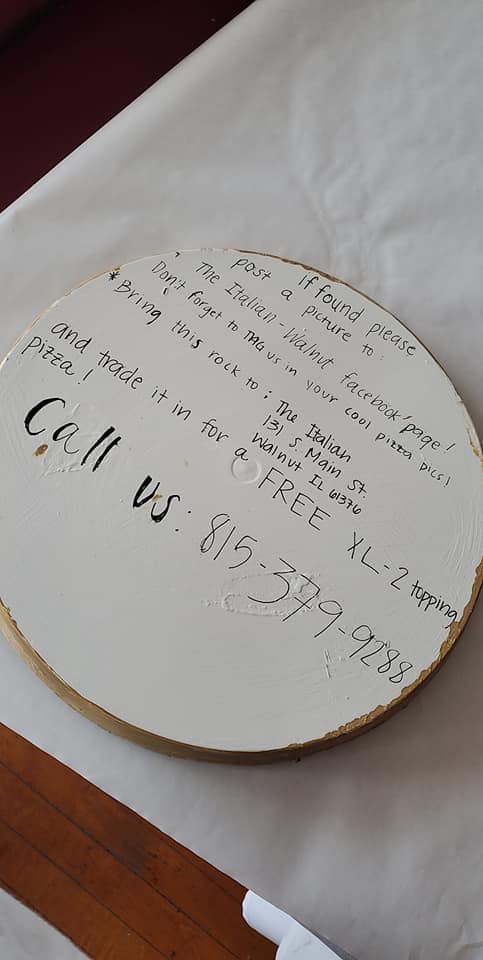 if found please
post a picture to:
The Italian - Walnut facebook page!
Don't forget to TAG us in your cool pizza pics!
* Bring this rock to: The Italian
131 S. Main St.
Walnut IL 61376
and trade it in for a FREE XL-2 topping
Pizza!
Call us: 815-379-9288